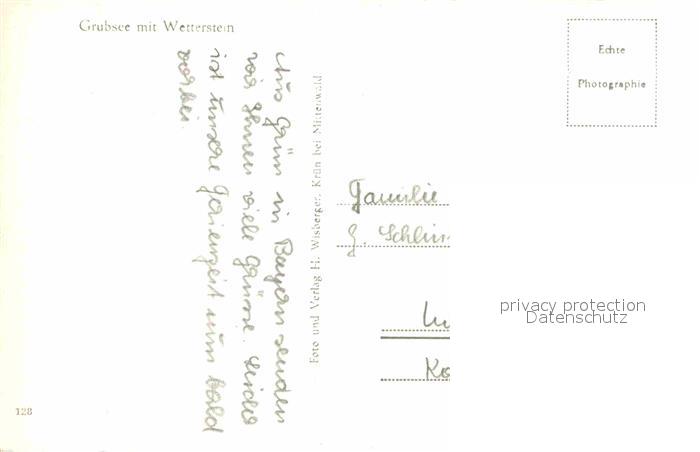 Grubsee mit Wetterstein
Echte
Photographie
Aus Grün in Bayern senden
wir Ihnen viele Grüsse. Leider
ist unsere Ferienzeit nun bald
vorbei.
Foto und Verlag H. Wisberger, Krün bei Mittenwald
Familie
G. Schlim
privacy protection
Datenschutz
128